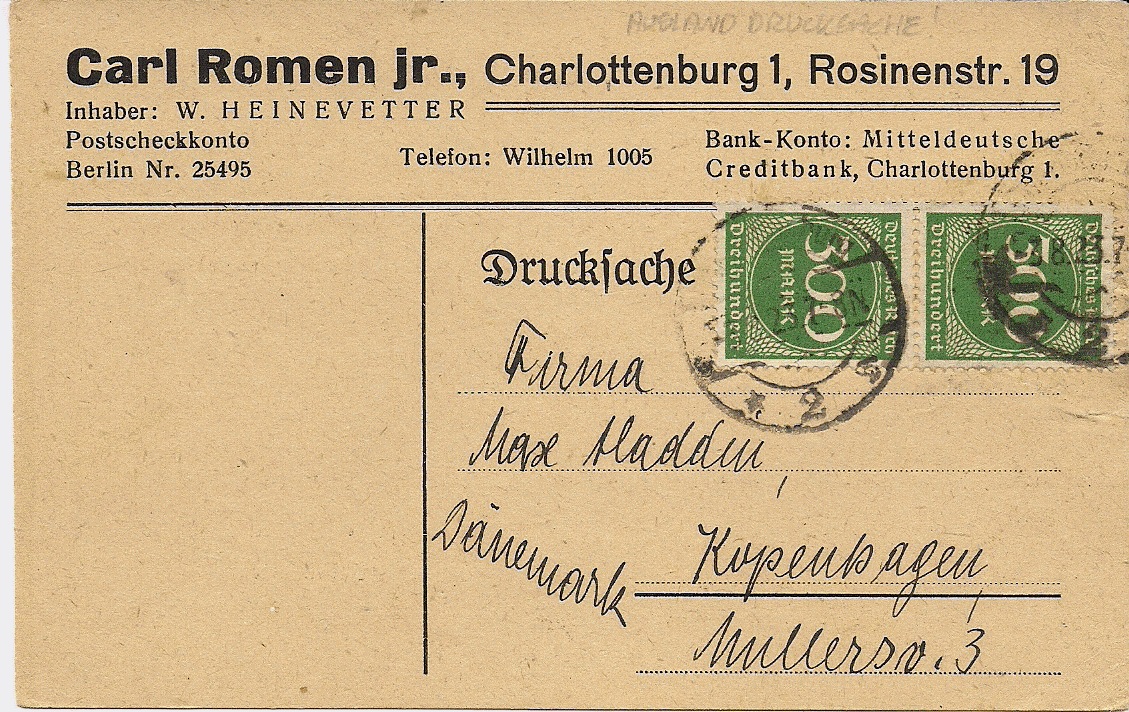 AUSLAND DRUCKSACHE!
Carl Romen jr., Charlottenburg 1, Rosinenstr. 19
Inhaber: W. HEINEVETTER
Postscheckkonto
Berlin Nr. 25495
Telefon: Wilhelm 1005
Bank-Konto: Mitteldeutsche
Creditbank, Charlottenburg 1.
Drucksache
Dreihundert
300
MARK
Deutsches Reich
Dreihundert
300
MARK
Deutsches Reich
8.23.7
* 2
2
Firma
Max Madden,
Dänemark
Kopenhagen,
Mullersv. 3